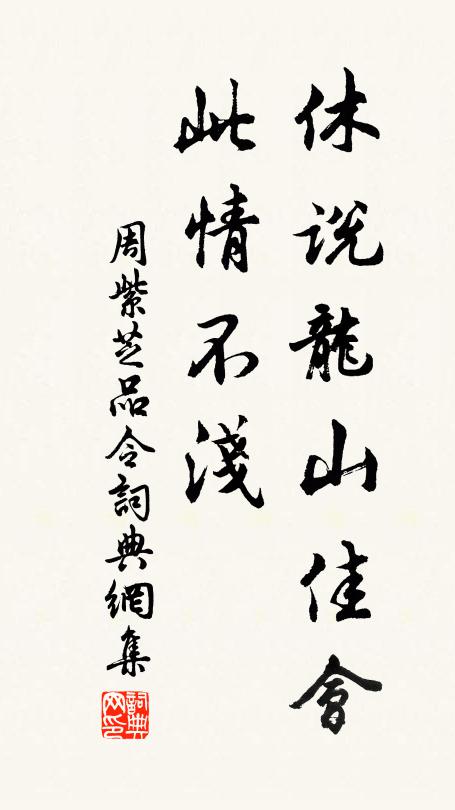 休說龍山佳會
此情不淺
周紫芝品令詞典網集
詞典網印